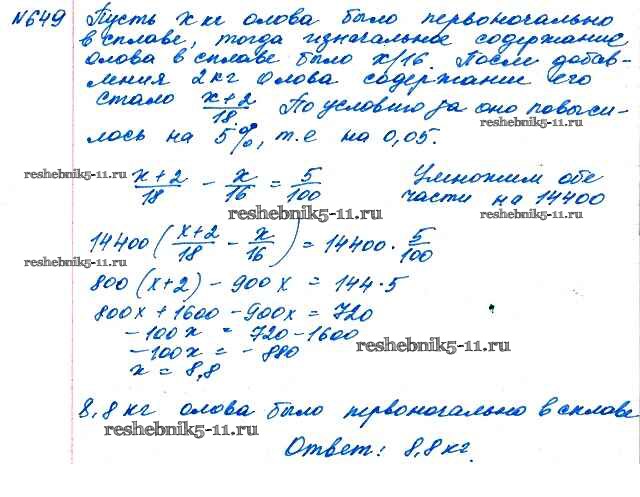 №649 Пусть x кг олова было первоначально
в сплаве, тогда изначальное содержание
олова в сплаве было x/16. После добав-
ления 2 кг олова содержание его
стало (x+2)/18. По условию оно повыси-
лось на 5%, т.е на 0,05.
reshebnik5-11.ru
reshebnik5-11.ru
(x+2)/18 - x/16 = 5/100 Умножим обе
части на 14400
reshebnik5-11.ru
reshebnik5-11.ru
14400((x+2)/18 - x/16) = 14400·5/100
reshebnik5-11.ru
800(x+2) - 900x = 144·5
800x + 1600 - 900x = 720
-100x = 720-1600
-100x = -880
reshebnik5-11.ru
x = 8,8
8,8 кг олова было первоначально в сплаве
reshebnik5-11.ru
Ответ: 8,8 кг.